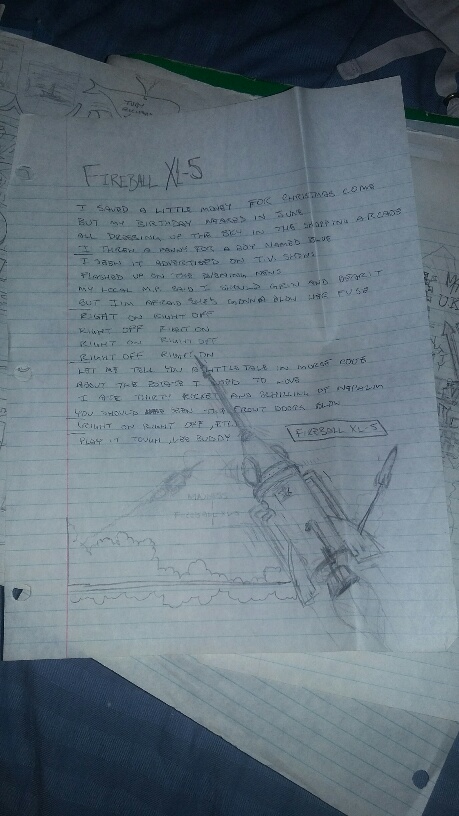 THEY
FIREBALL XL-5
I SAVED A LITTLE MONEY FOR CHRISTMAS COME
BUT MY BIRTHDAY IN JUNE
ALL DRESSING UP THE SKY IN THE SHOPPING ARCADE
I THREW A PENNY FOR A BOY NAMED BLUE
I SEEN IT ADVERTISED ON T.V. SHOWS
FLASHED UP ON THE NEWS
MY LOCAL M.P. SAID I SHOULD GRIN AND BEAR IT
BUT I'M AFRAID SHE'S GONNA BLOW HER FUSE
RIGHT ON RIGHT OFF
RIGHT OFF RIGHT ON
RIGHT ON RIGHT OFF
RIGHT OFF RIGHT ON
LET ME TELL YOU A LITTLE TALE IN MORSE CODE
ABOUT THE I USED TO LOVE
I ATE THIRTY AND A SHILLING OF NAPALM
YOU SHOULD SEEN FRONT DOORS BLOW
RIGHT ON RIGHT OFF, ETC.
PLAY IT TOUGH, LES BUDDY
FIREBALL XL-5